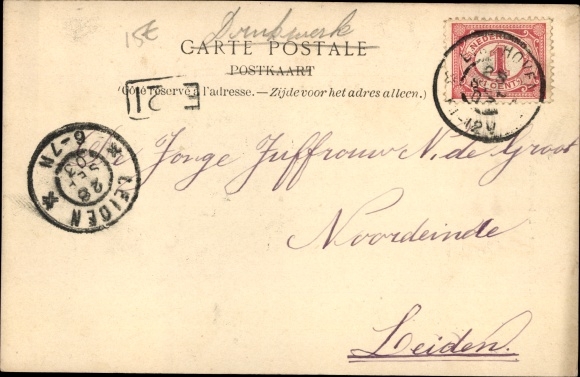 15€ Drukwerk
CARTE POSTALE
POSTKAART
(Côté réservé à l'adresse. — Zijde voor het adres alleen.)
NEDERL
1
CENT
E 21
LEIDEN
6-7N
28
SEP
03
Jonge Juffrouw N. de Groot
Noordeinde
Leiden.